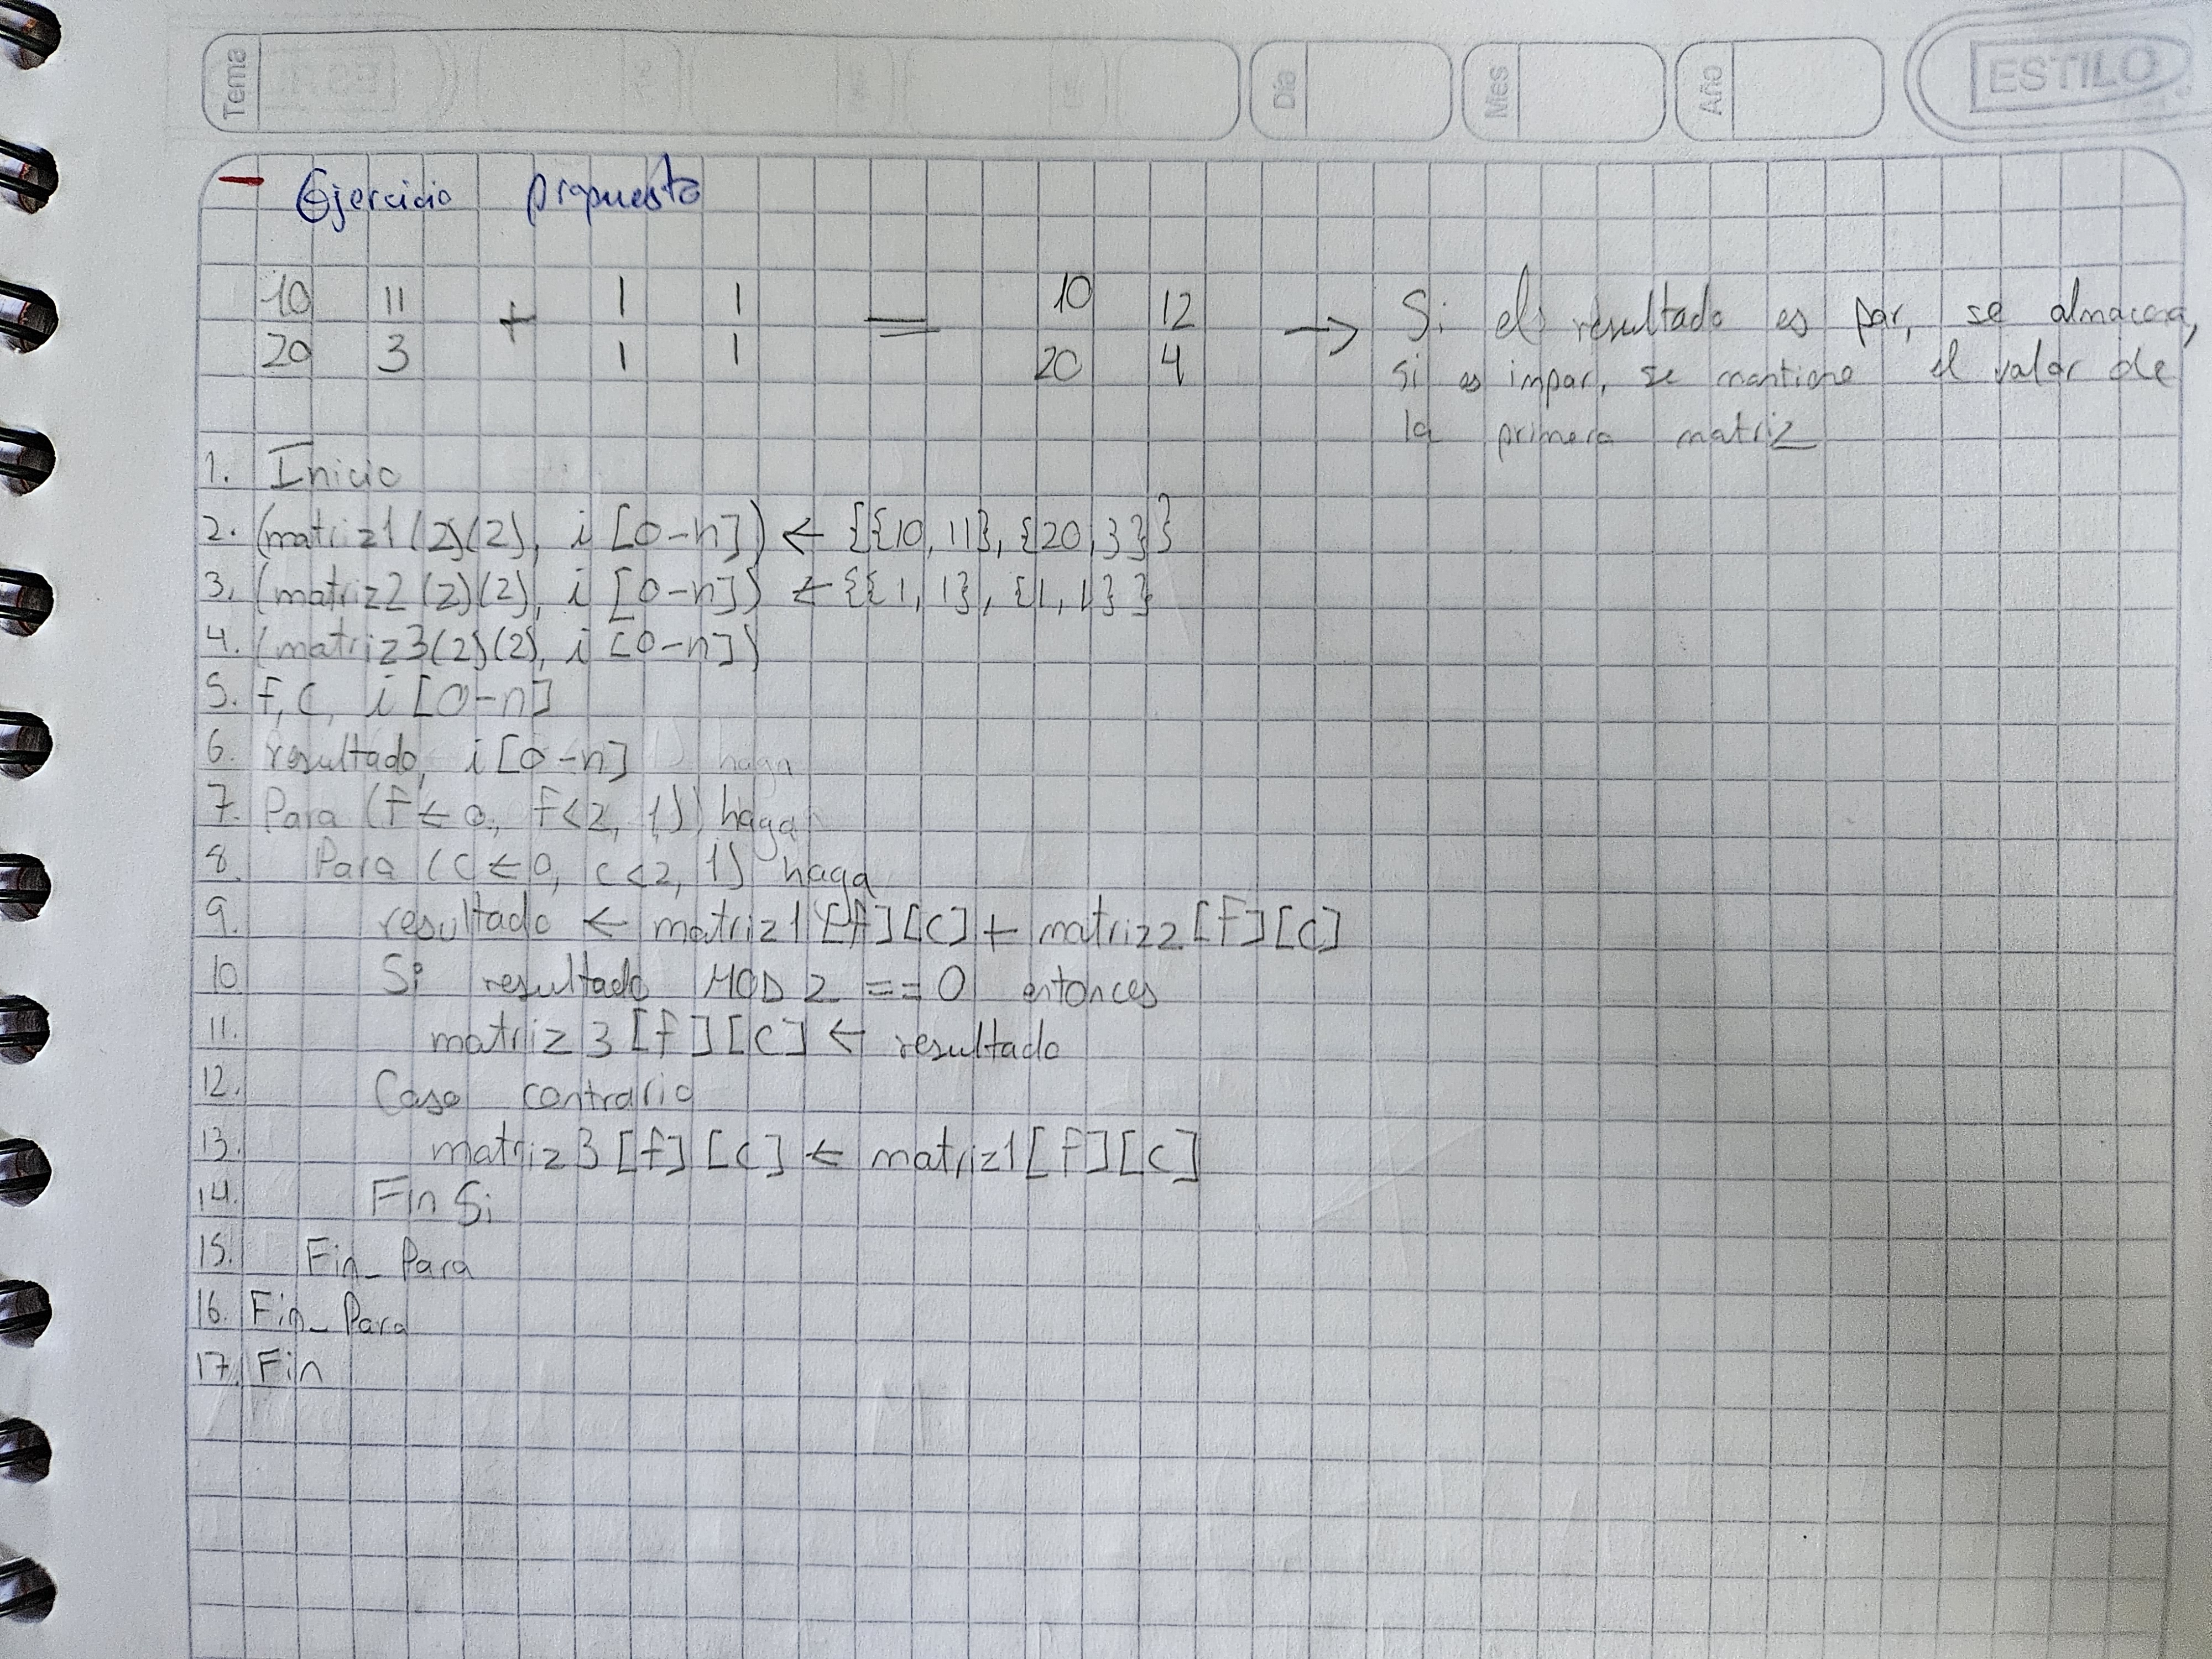 Tema
Día
Mes
Año
ESTILO
- Ejercicio propuesto
10 11 + 1 1 = 10 12 → Si el resultado es par, se almacena,
20 3 1 1 20 4 si es impar, se mantiene el valor de
la primera matriz
1. Inicio
2. (matriz1(2)(2), i [0-n]) ← {{10, 11}, {20, 3}}
3. (matriz2(2)(2), i [0-n]) ← {{1, 1}, {1, 1}}
4. (matriz3(2)(2), i [0-n])
5. f, c, i [0-n]
6. resultado, i [0-n]
7. Para (f ← 0, f<2, 1) haga
8. Para (c ← 0, c<2, 1) haga
9. resultado ← matriz1[f][c] + matriz2[f][c]
10 Si resultado MOD 2 == 0 entonces
11. matriz3[f][c] ← resultado
12. Caso contrario
13. matriz3[f][c] ← matriz1[f][c]
14. Fin Si
15. Fin_Para
16. Fin_Para
17. Fin